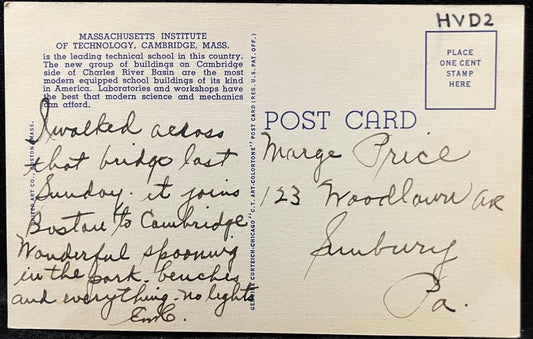 HVD2
MASSACHUSETTS INSTITUTE
OF TECHNOLOGY, CAMBRIDGE, MASS.
is the leading technical school in this country.
The new group of buildings on Cambridge
side of Charles River Basin are the most
modern equipped school buildings of its kind
in America. Laboratories and workshops have
the best that modern science and mechanics
can afford.
PLACE
ONE CENT
STAMP
HERE
POST CARD
I walked across
that bridge last
Sunday. it joins
Boston to Cambridge
Wonderful spooning
in the park. benches
and everything. no lights
Marge Price
123 Woodlawn Ave
Sunbury
Pa.
ART CO., BOSTON, MASS.
GEORGE CURTEICH-CHICAGO "C.T. ART-COLORTONE" POST CARD (REG. U.S. PAT. OFF.)